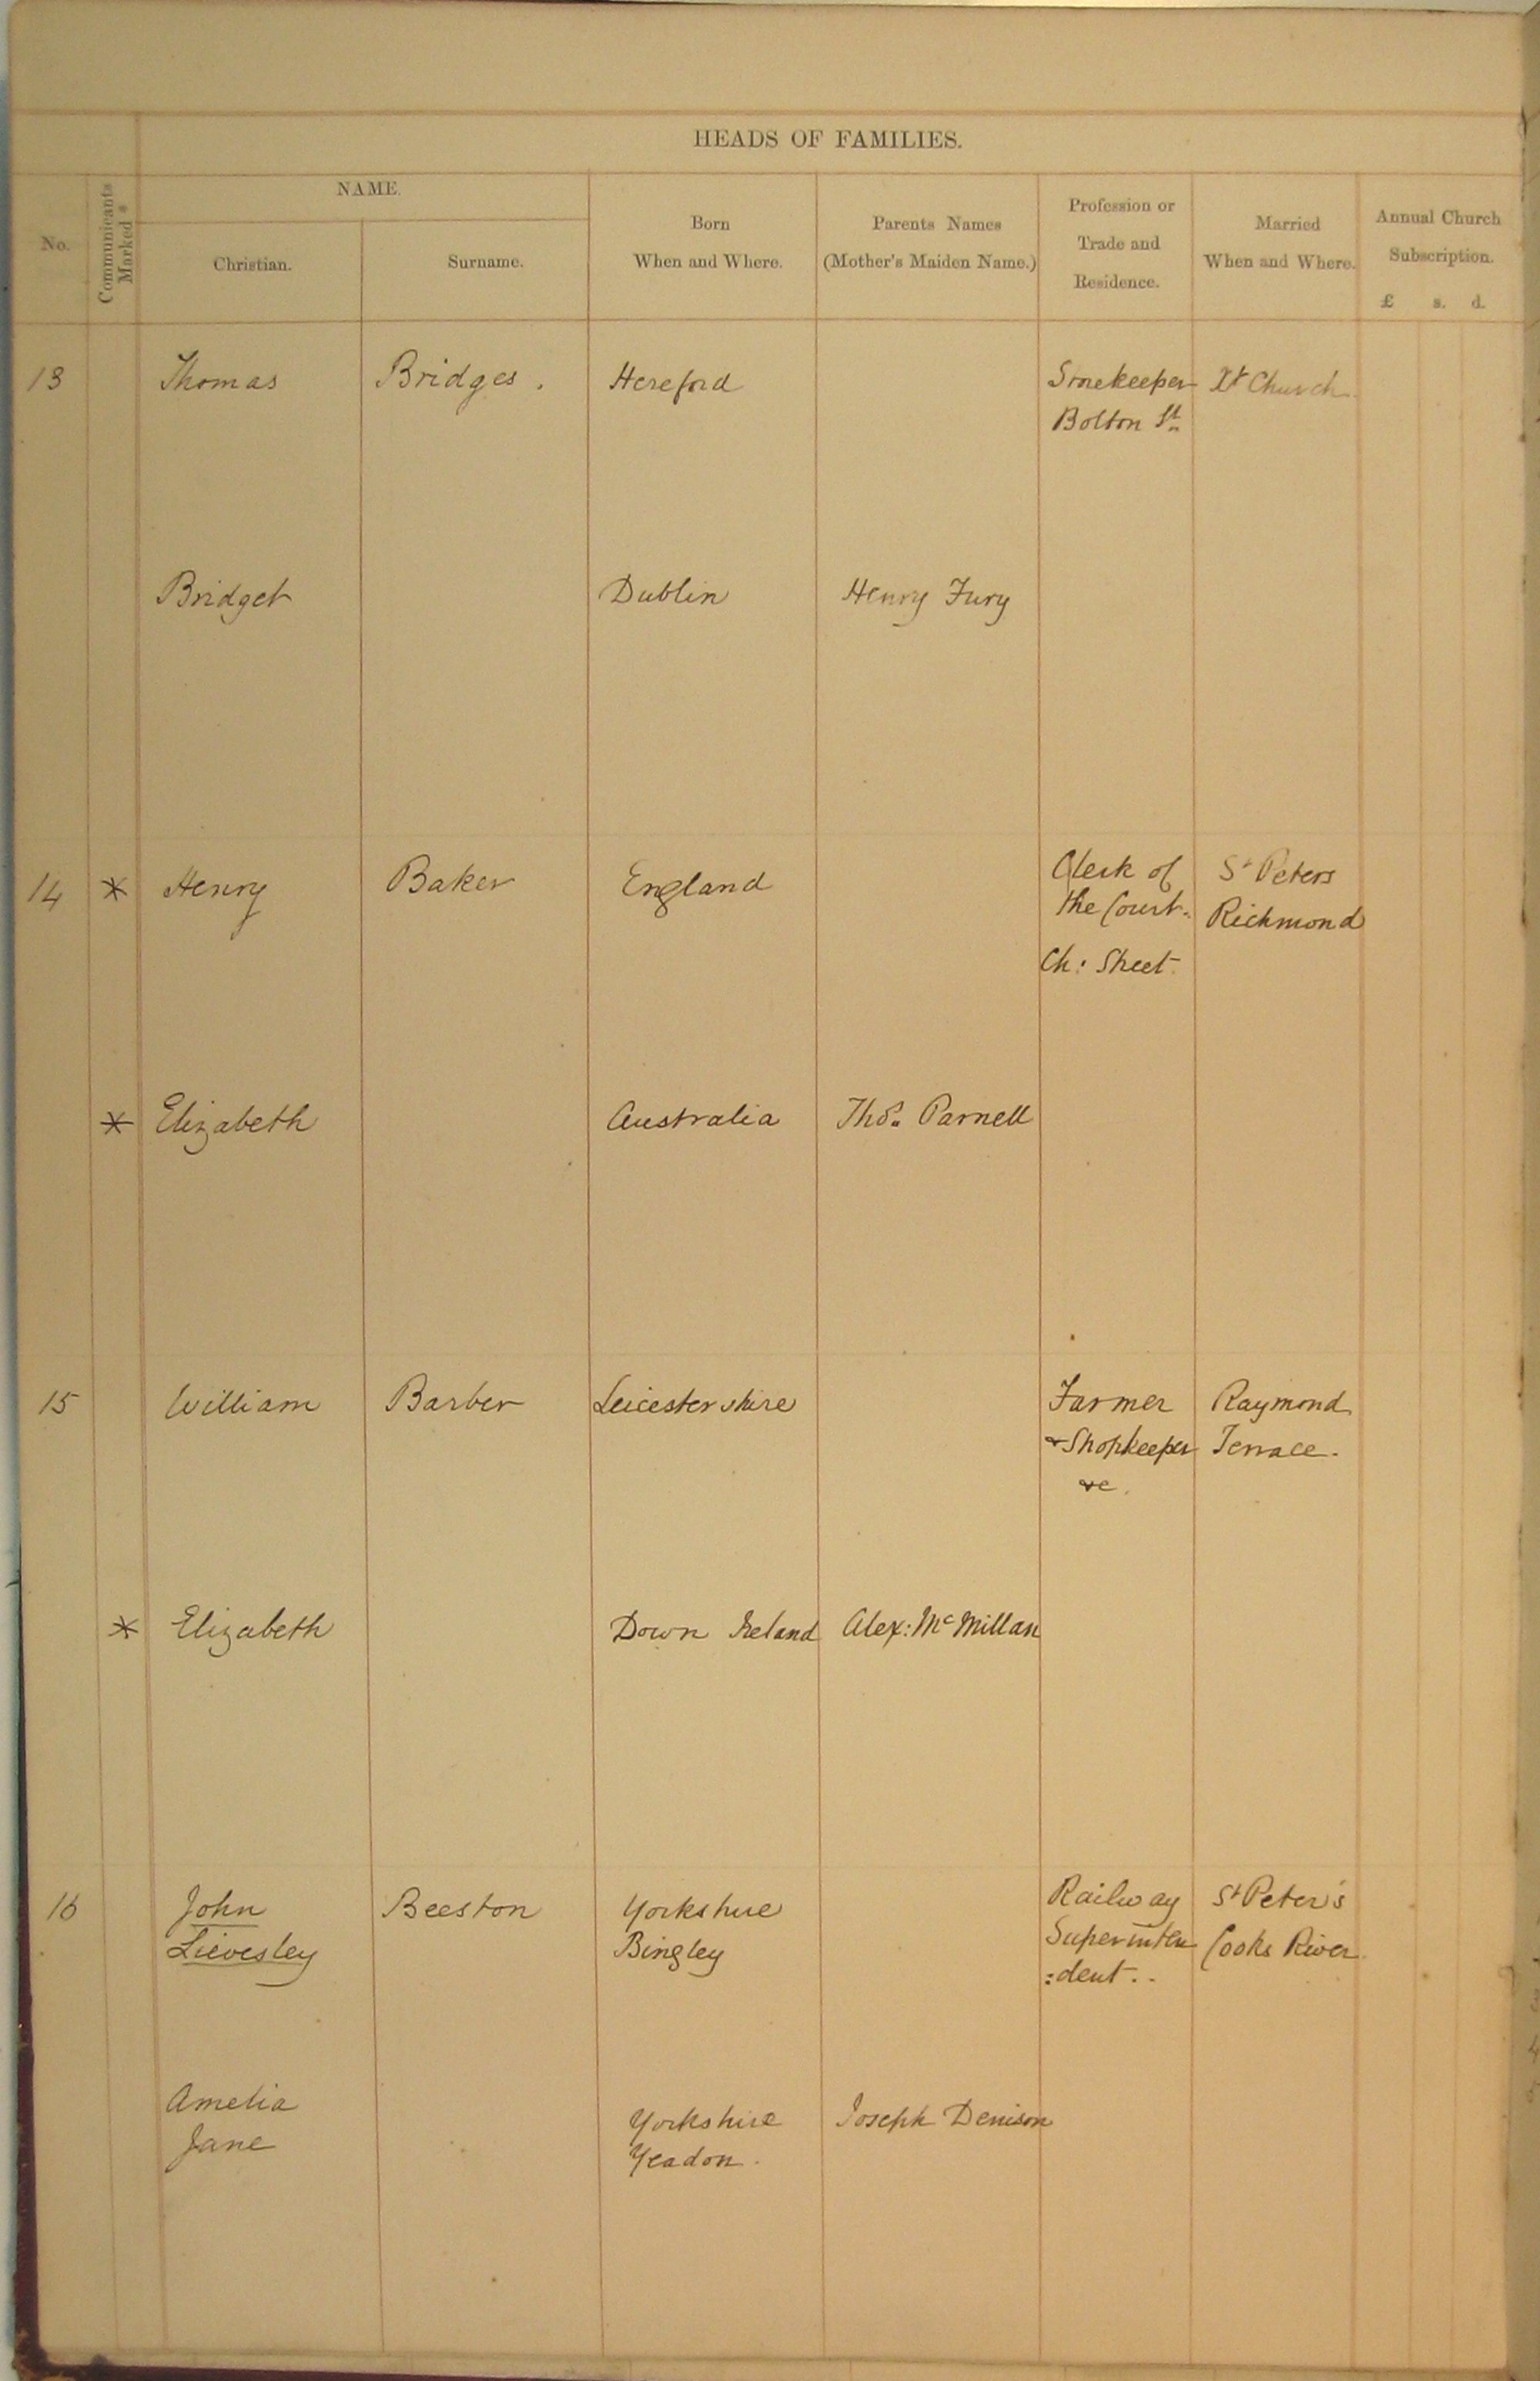 HEADS OF FAMILIES.
No.
Communicants Marked *
NAME.
Christian.
Surname.
Born
When and Where.
Parents Names
(Mother's Maiden Name.)
Profession or
Trade and
Residence.
Married
When and Where.
Annual Church
Subscription.
£ s. d.
13 Thomas Bridges. Hereford Storekeeper Xt Church
Bolton St.
Bridget Dublin Henry Fury
14 * Henry Baker England Clerk of St Peters
the Court. Richmond
Ch: Street.
* Elizabeth Australia Thos. Parnell
15 William Barber Leicestershire Farmer Raymond
& Shopkeeper Terrace.
&c.
* Elizabeth Down Ireland Alex: McMillan
16 John Beeston Yorkshire Railway St Peter's
Lievesley Bingley Superinten Cooks River
:dent..
Amelia Yorkshire Joseph Denison
Jane Yeadon.